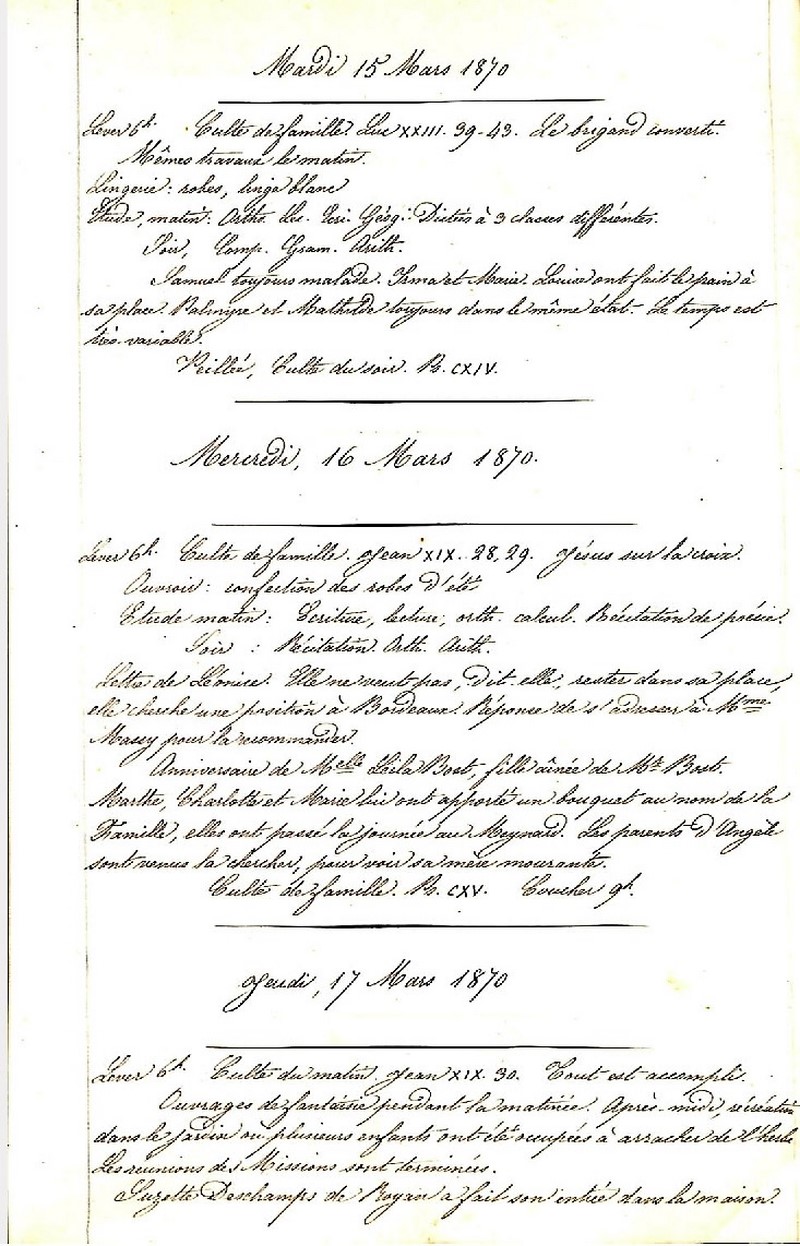 Mardi 15 Mars 1870
Lever 6h. Culte de famille. Luc XXIII. 39-43. Le brigand converti.
Mêmes travaux le matin.
Lingerie : robes, linge blanc
Etude, matin : Ortho. Lec. Ecri. Géog : Dictées à 3 classes différentes.
Soir, Comp. Gram. Arith.
Samuel toujours malade. Irma et Marie-Louise ont fait le pain à
sa place. Palmyre et Mathilde toujours dans le même état. Le temps est
très-variable.
Veillée, Culte du soir. Ps. CXIV.
Mercredi, 16 Mars 1870.
Lever 6h. Culte de famille. Jean XIX. 28, 29. Jésus sur la croix.
Ouvroir : confection des robes d'été
Etude matin : Ecriture, lecture, orth. calcul. Récitation de poésie.
Soir : Récitation. Orth. Arith.
Lettre de Léonise. Elle ne veut pas, dit-elle, rester dans sa place,
elle cherche une position à Bordeaux. Réponse de s'adresser à Mme
Massy pour la recommander.
Anniversaire de Melle Leïla Bost, fille aînée de Mr Bost.
Marthe, Charlotte et Marie lui ont apporté un bouquet au nom de la
Famille, elles ont passé la journée au Meynard. Les parents d'Angèle
sont venus la chercher, pour voir sa mère mourante.
Culte de famille. Ps. CXV. Coucher 9h.
Jeudi, 17 Mars 1870
Lever 6h. Culte du matin. Jean XIX. 30. Tout est accompli.
Ouvrages de fantaisie pendant la matinée. Après-midi, récréation
dans le jardin où plusieurs enfants ont été occupées à arracher de l'herbe
Les réunions des Missions sont terminées.
Suzette Deschamps de Royan a fait son entrée dans la maison.